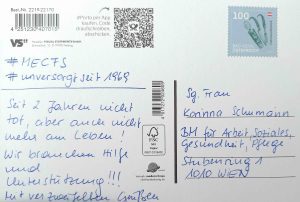 Best.-Nr. 2219/22170
VS
4 251230 407010
#Porto per App
kaufen, Code
draufschreiben,
abschicken.
100
ÖSTERREICH
#MECFS
#unversorgt seit 1969
Seit 2 Jahren nicht
tot, aber auch nicht
mehr am Leben!
Wir brauchen Hilfe
und
Unterstützung!!!
Mit verzweifelten Grüßen
FSC
Sg. Frau
Korinna Schumann
BM für Arbeit, Soziales,
Gesundheit, Pflege
Stubenring 1
1010 WIEN